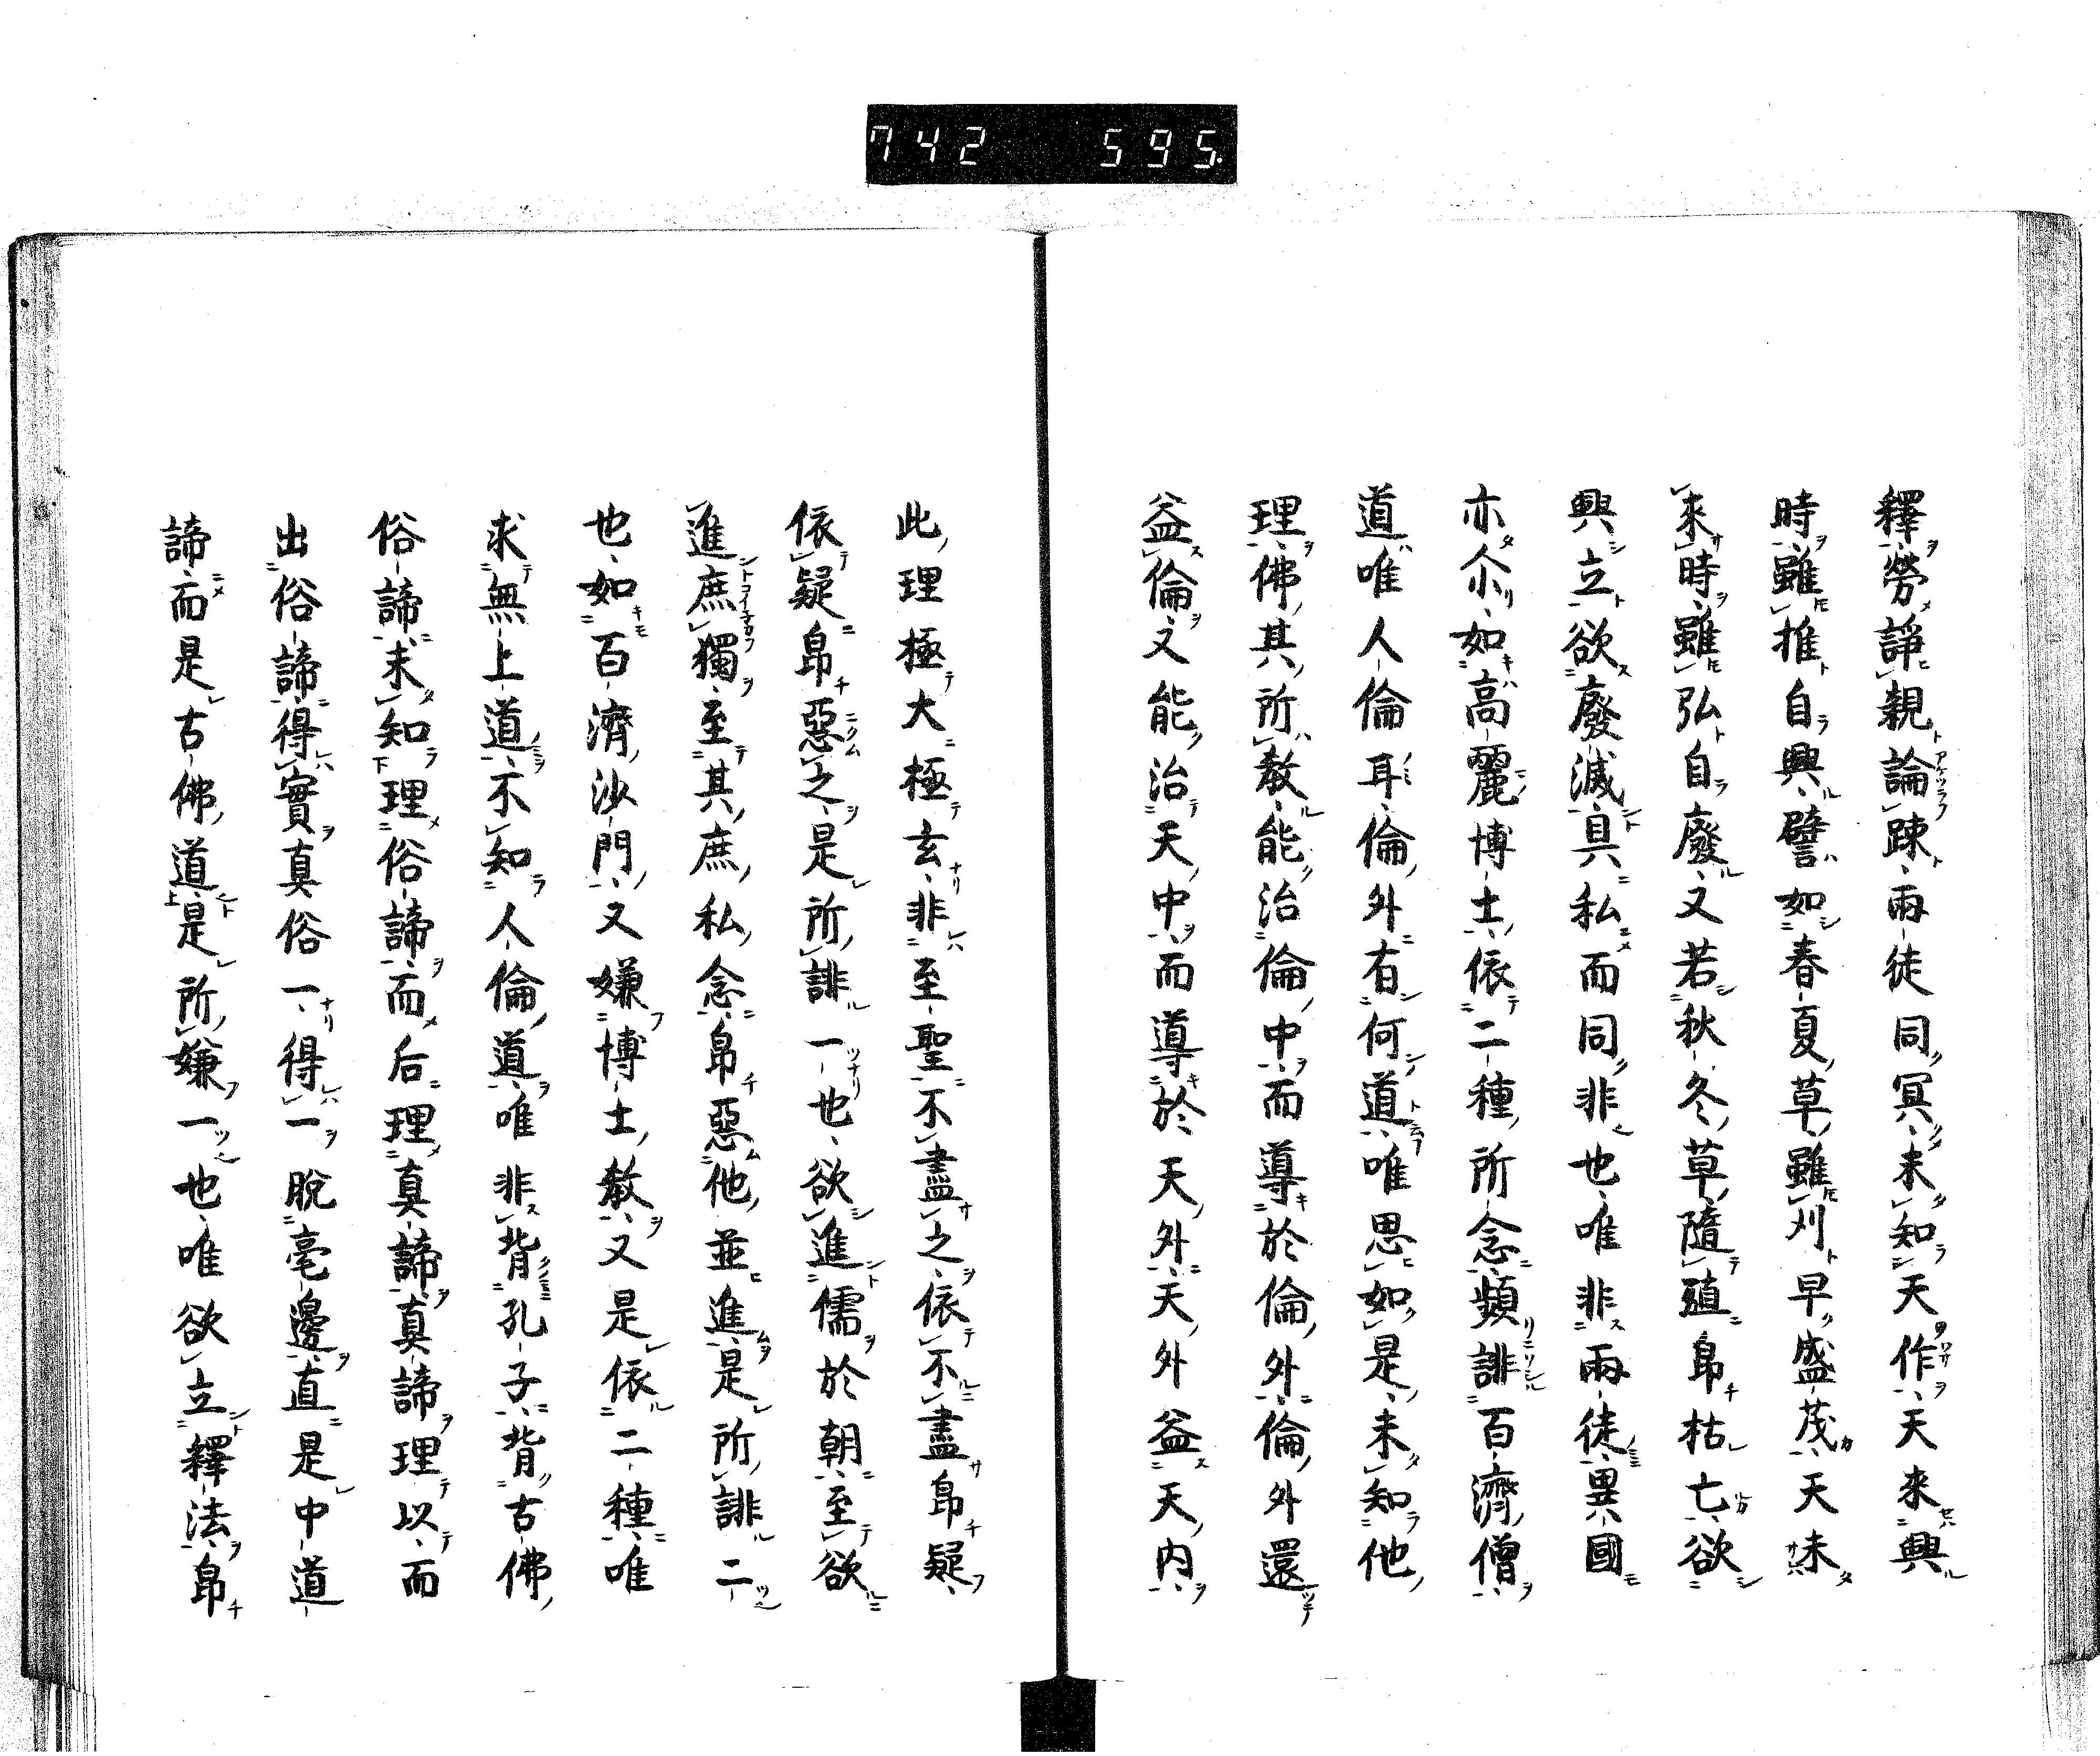 742 595
釋勞諍親論踈兩徒同冥未知天作天來興
時雖推自興譬如春夏草雖刈早盛茂天未
來時雖弘自廢又若秋冬草隨殖帠枯亡欲
興立欲廢滅具私而同非也唯非兩徒異國
亦尒如高麗博士依二種所念頻誹百濟僧
道唯人倫耳倫外有何道唯思如是未知他
理佛其所教能治倫中而導於倫外倫外還
益倫又能治天中而導於天外天外益天内
此理極大極玄非至聖不盡之依不盡帠疑
依疑帠惡之是所誹一也欲進儒於朝至欲
進庶獨至其庶私念帠惡他並進是所誹二
也如百濟沙門又嫌博士教又是依二種唯
求無上道不知人倫道唯非背孔子背古佛
俗諦未知理俗諦而后理真諦真諦理以而
出俗諦得實真俗一得一脫毫邊直是中道
諦而是古佛道是所嫌一也唯欲立釋法帠